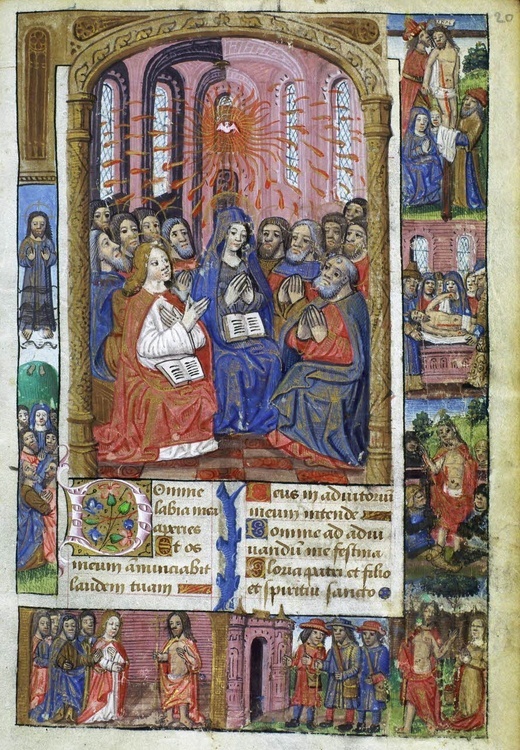 20
Domine
labia mea
aperies
Et os
meum anunciabit
laudem tuam
Deus in adiutoriū
meum intende
Domine ad adiu
uandū me festina
Gloria patri et filio
et spiritui sancto